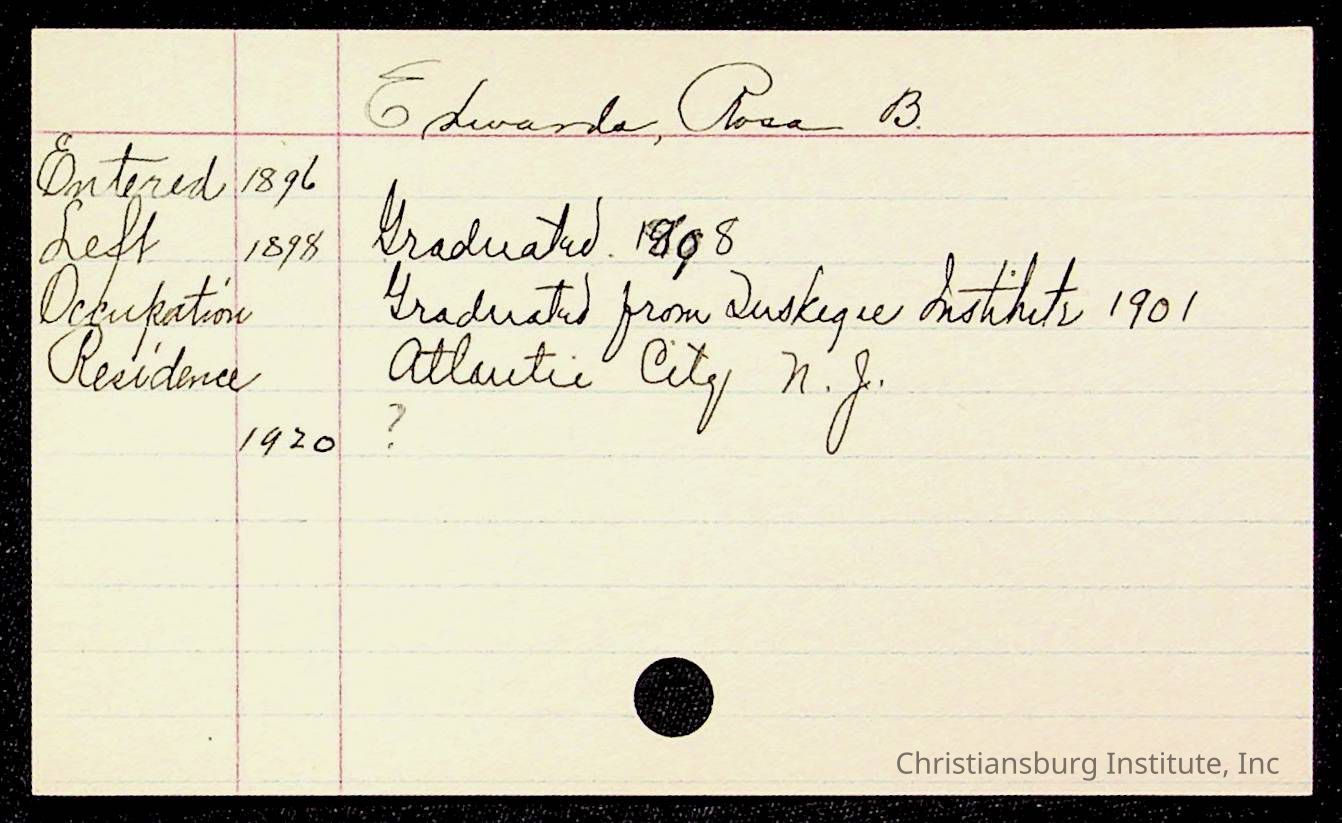 Edwards, Rosa B.
Entered 1896
Left 1898 Graduated. 1898
Occupation Graduated from Tuskegee Institute 1901
Residence Atlantic City N. J.
1920 ?
Christiansburg Institute, Inc